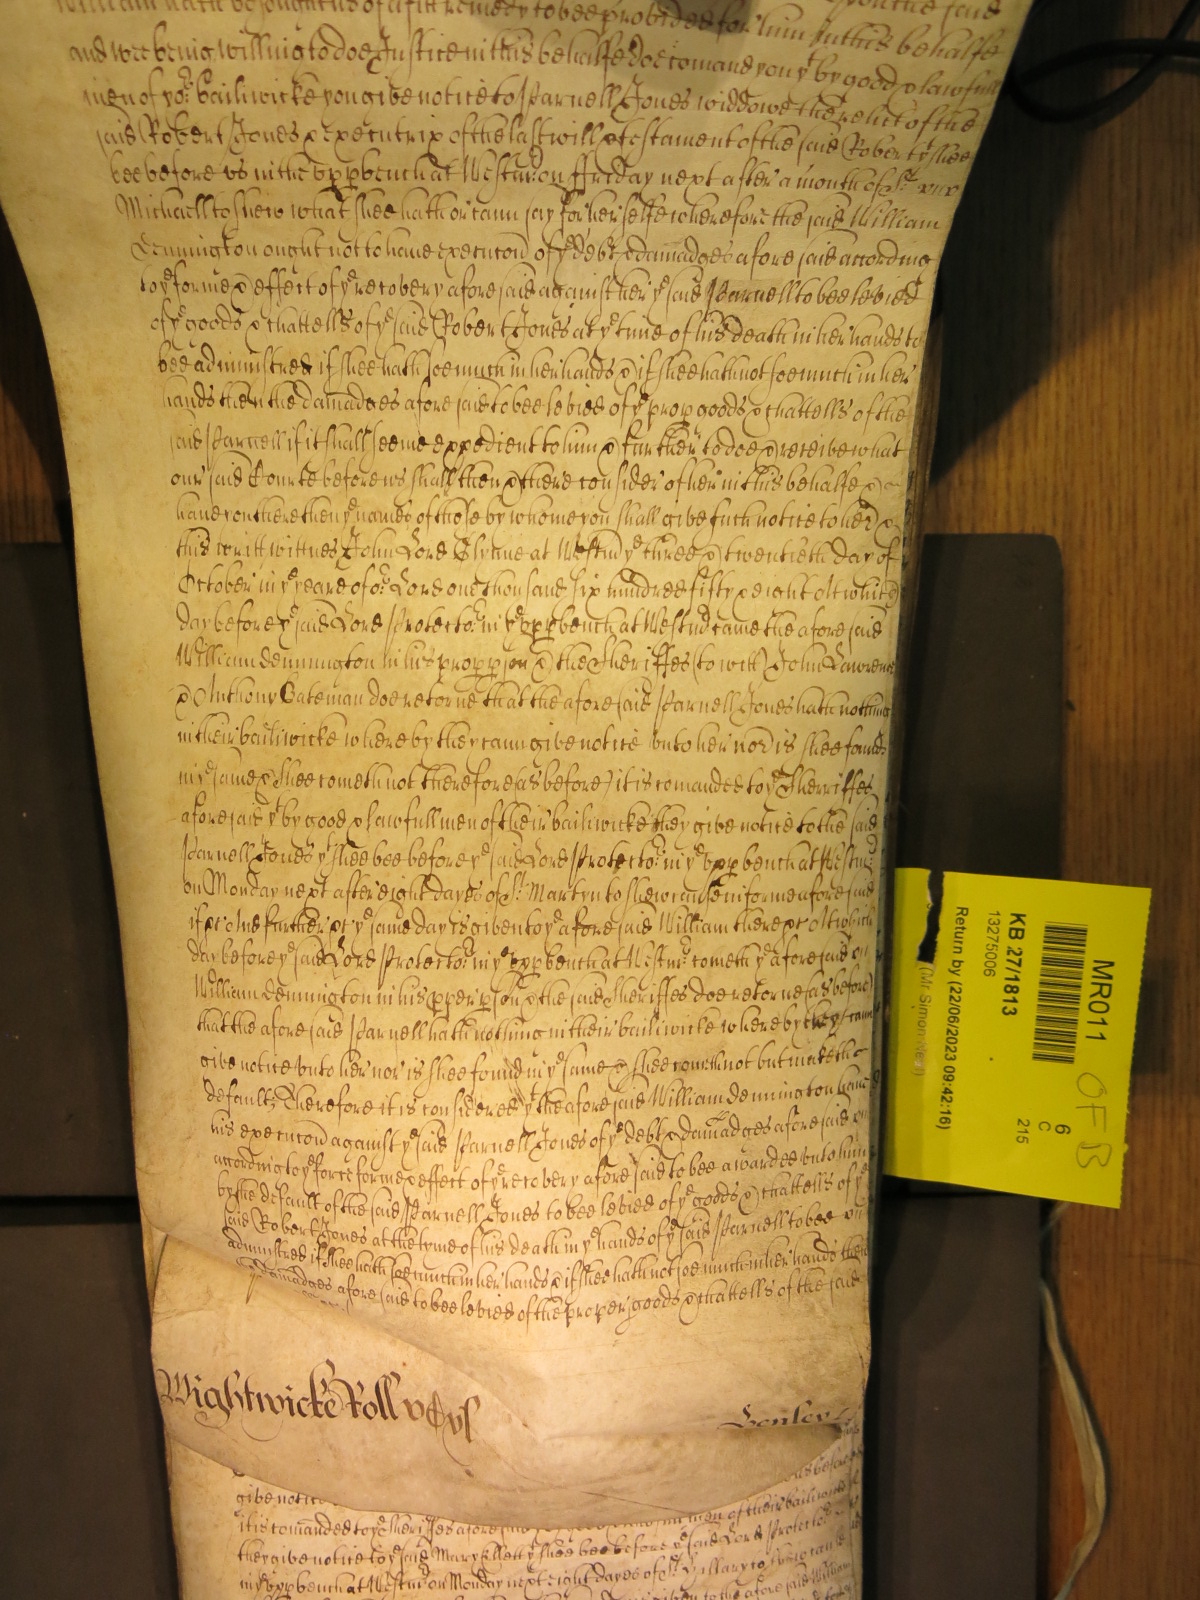 William hath besought us of a fitt remedy to bee provided for him in this behalfe
and wee being willing to doe Justice in this behalfe doe comand you yt by good & lawfull
men of yor bailiwicke you give notice to Parnell Jones widdowe the relict of the
said Robert Jones & executrix of the last will & testament of the said Robert yt shee
bee before us in the upp bench at Westm on ffriday next after a month of St
Michaell to shew what shee hath or cann say for her selfe wherefore the said William
Dennington ought not to have execucon of ye debt & damadges aforesaid according
to ye forme & effect of ye recovery aforesaid against her ye said Parnell to bee levied
of ye goods & chattells of ye said Robert Jones at ye time of his death in her hands to
bee administred if shee hath soe much in her hands & if shee hath not soe much in her
hands then the damadges aforesaid to bee levied of ye prop goods & chattells of the
said Parnell if it shall seeme expedient to him & further to doe & receive what
our said Courte before us shall then & there consider of her in this behalfe &
have you there then ye names of those by whome you shall give such notice to her &
this writt wittnes John Lord Glynne at Westm ye three & twentieth day of
October in ye yeare of or Lord one thousand six hundred fifty & eight At which
day before ye said Lord Protector in ye upp bench at Westm came the aforesaid
William Dennington in his prop pson & the Sheriffes (to witt) John Lawrence
& Anthony Bateman doe retorne that the aforesaid Parnell Jones hath nothing
in their bailiwicke whereby they cann give notice unto her nor is shee found
in ye same & shee cometh not therefore (as before) it is comanded to ye Sherriffes
aforesaid yt by good & lawfull men of their bailiwicke they give notice to the said
Parnell Jones yt shee bee before ye said Lord Protector in ye upp bench at Westm
on Monday next after eight dayes of St Martyn to shew cause in forme aforesaid
if &c And further &c ye same day is given to ye aforesaid William there &c At which
day before ye said Lord Protector in ye upp bench at Westmr cometh ye aforesaid
William Dennington in his pper pson & the said Sheriffes doe retorne (as before)
that the aforesaid Parnell hath nothing in their bailiwicke whereby they cann
give notice unto her nor is shee found in ye same & shee cometh not but maketh
default Therefore it is considered yt the aforesaid William Dennington have
his execucon against ye said Parnell Jones of ye debt & damadges aforesaid
according to ye force forme & effect of ye recovery aforesaid to bee awarded unto him
by the default of the said Parnell Jones to bee levied of ye goods & chattells of ye
said Robert Jones at the tyme of his death in ye hands of ye said Parnell to bee
admistred if shee hath soe much in her hands & if shee hath not soe much in her hands then
ye damadges aforesaid to bee levied of the proper goods & chattells of the said
Wightwicke Roll
Henley
give notice
it is comanded to ye Sheriffes men of their bailiwicke
they give notice to ye said Mary yt shee bee before ye said Lord Protector
in ye upp bench at Westmr on Monday next eight dayes of St Hillary to shew cause
MR011
OFB
KB 27/1813
13275006
6
C
215
Return by (22/06/2023 09:42:16)
(Mr Simon Neal)